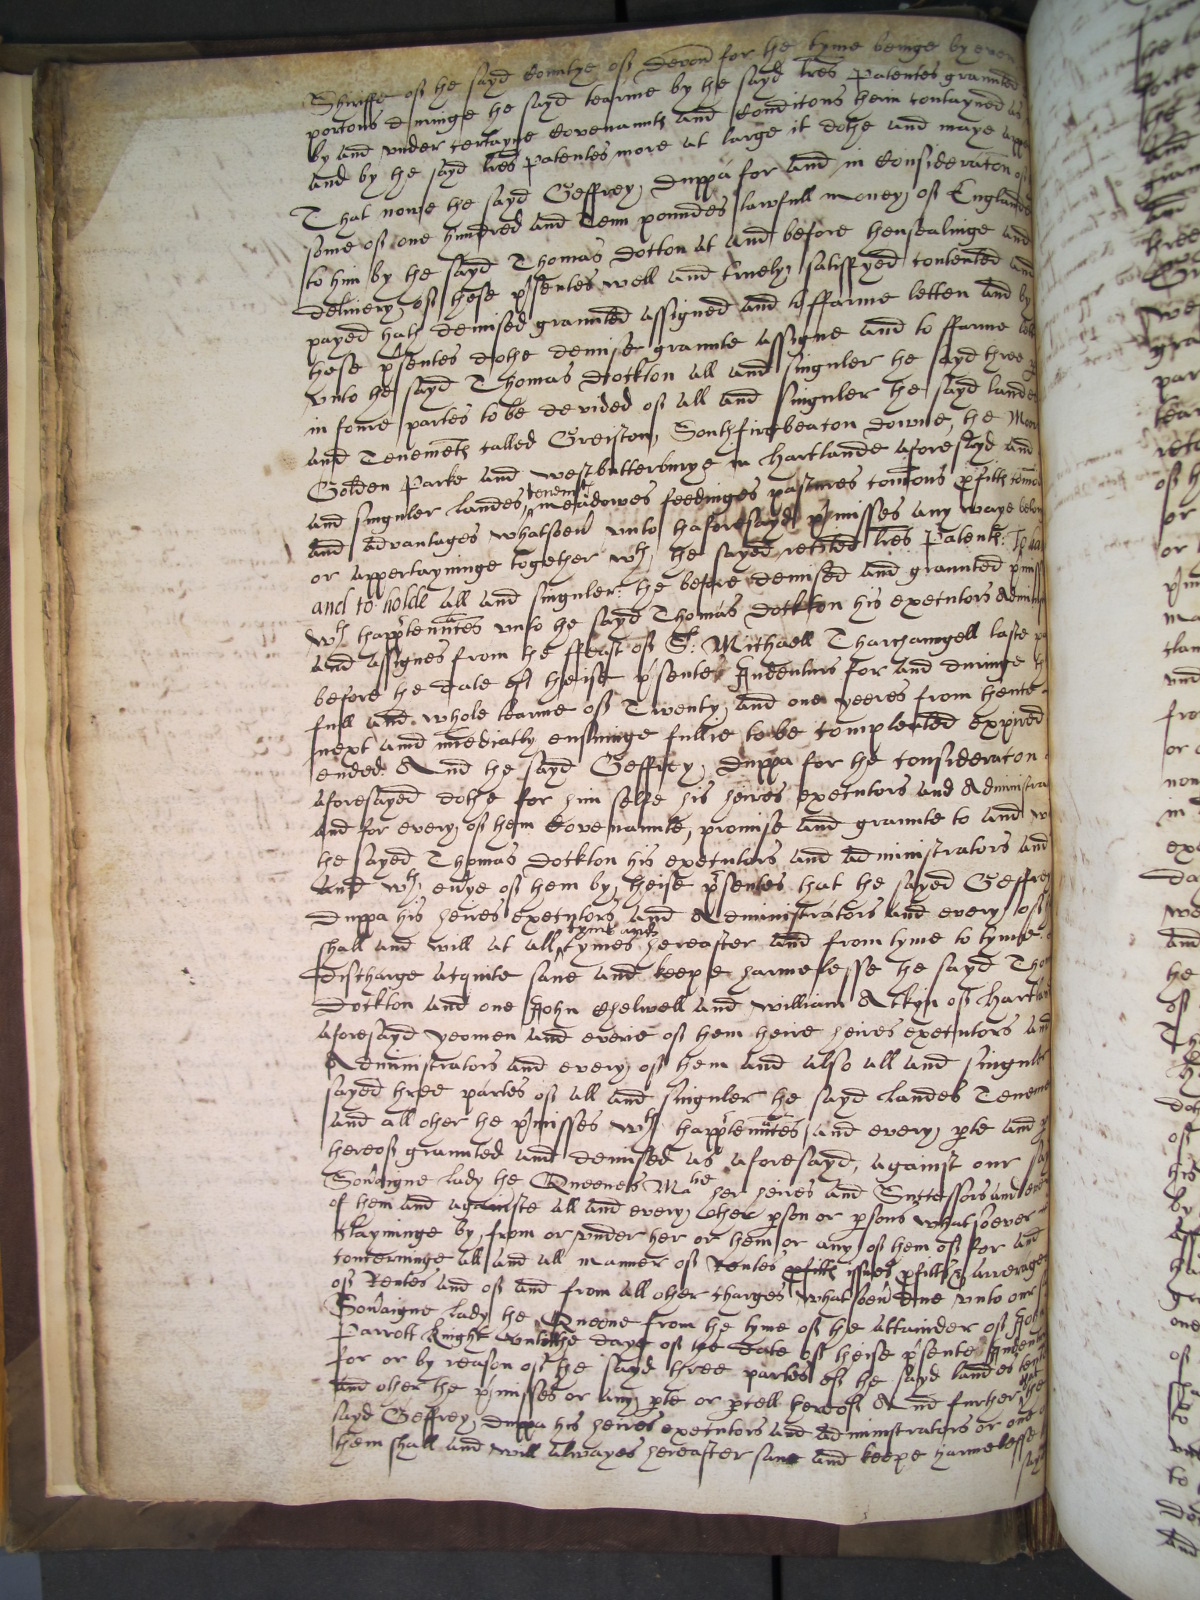 Shriffe off the sayd Countye off Devon for the tyme beinge by even
portons duringe the sayd tearme by the sayd lres Patentes graunted
by and vnder certayne Covenaunts and Conditons therin contayned as
and by the sayd lres Patentes more at large it dothe and maye appe
That nowe the sayd Geffrey Duppa for and in Consideraton of
some off one hundred and Tenn poundes lawfull money off Englande
to him by the sayd Thomas Docton at and before thensealinge and
delivery off these psentes well and truely satisfyed contented and
payed hath demised graunted assigned and to ffarme letten and by
these psentes dothe demise graunte assigne and to ffarme lett
vnto the sayd Thomas Dockton all and singuler the sayd three
in foure partes to be devided off all and singuler the sayd landes
and Tenemts called Greiston, Southfirebeacon Downe, the Moore
Golden Parke and Westbutterburye in Hartlande aforesayd and
and singuler landes tenemts meadowes feedinges pastures comons pfitts
and advantages whatsoeu vnto thaforesayd pmisses any waye belon
or appertayninge together wth the sayed recited lres Patents: To haue
and to holde all and singuler the before demised and graunted pmiss
wth thapptennces vnto the sayd Thomas Dockton his executors Adminis
and assignes from the ffeast off St: Michaell Tharchanngell laste p
before the date off theise psente Indenturs for and duringe th
full and whole tearme off Twenty and one yeeres from thence
next and imediatly ensuinge fullie to be compleated expired
ended: And the sayd Geffrey Duppa for the consideraton
aforesayed dothe for him selfe his heires executors and Administra
and for every off them Covenaunte, promise and graunte to and w
the sayed Thomas Dockton his executors and administrators and
and wth eurye off them by theise psentes that the sayed Geffrey
Duppa his heires executors and Administrators and every off
shall and will at all tyme and tymes hereafter and from tyme to tyme
discharge acquite save and keepe harmelesse the sayd Tho
Dockton and one John Chelwell and William Atkyn off Hartland
aforesayd yeomen and everie off them theire heires executors and
Administrators and every off them and also all and singuler
sayed three partes off all and singuler the sayd landes Teneme
and all other the pmisses wth thapptennces and every pte and p
thereoff graunted and demised as aforesayd, against our say
Sovaigne lady the Queenes Matie her heires and Successors and eu
of them and againste all and every other pson or psons whatsoever
Clayminge by, from or vnder her or them or any off them off for and
concerninge all and all manner off Rentes issues pfitts arrerages
off Rentes and off and from all other charges whatsoeu due vnto our
Sovaigne lady the Queene from the tyme off the attainder off John
Parrott Knight vntill the daye off the date off theise psente Inden
for or by reason off the sayd three partes off the sayd landes
and other the pmisses or any pte or pcell thereoff And further that the
sayd Geffrey Duppa his heires executors and administrators or one
them shall and will alwayes hereafter save and keepe harmelesse
say